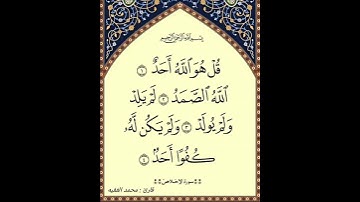 بسم الله الرحمن الرحيم
قُلْ هُوَ ٱللَّهُ أَحَدٌ ١
ٱللَّهُ ٱلصَّمَدُ ٢ لَمْ يَلِدْ
وَلَمْ يُولَدْ ٣ وَلَمْ يَكُن لَّهُۥ
كُفُوًا أَحَدٌۢ ٤
سورة الإخلاص
قارئ : محمد الفقيه